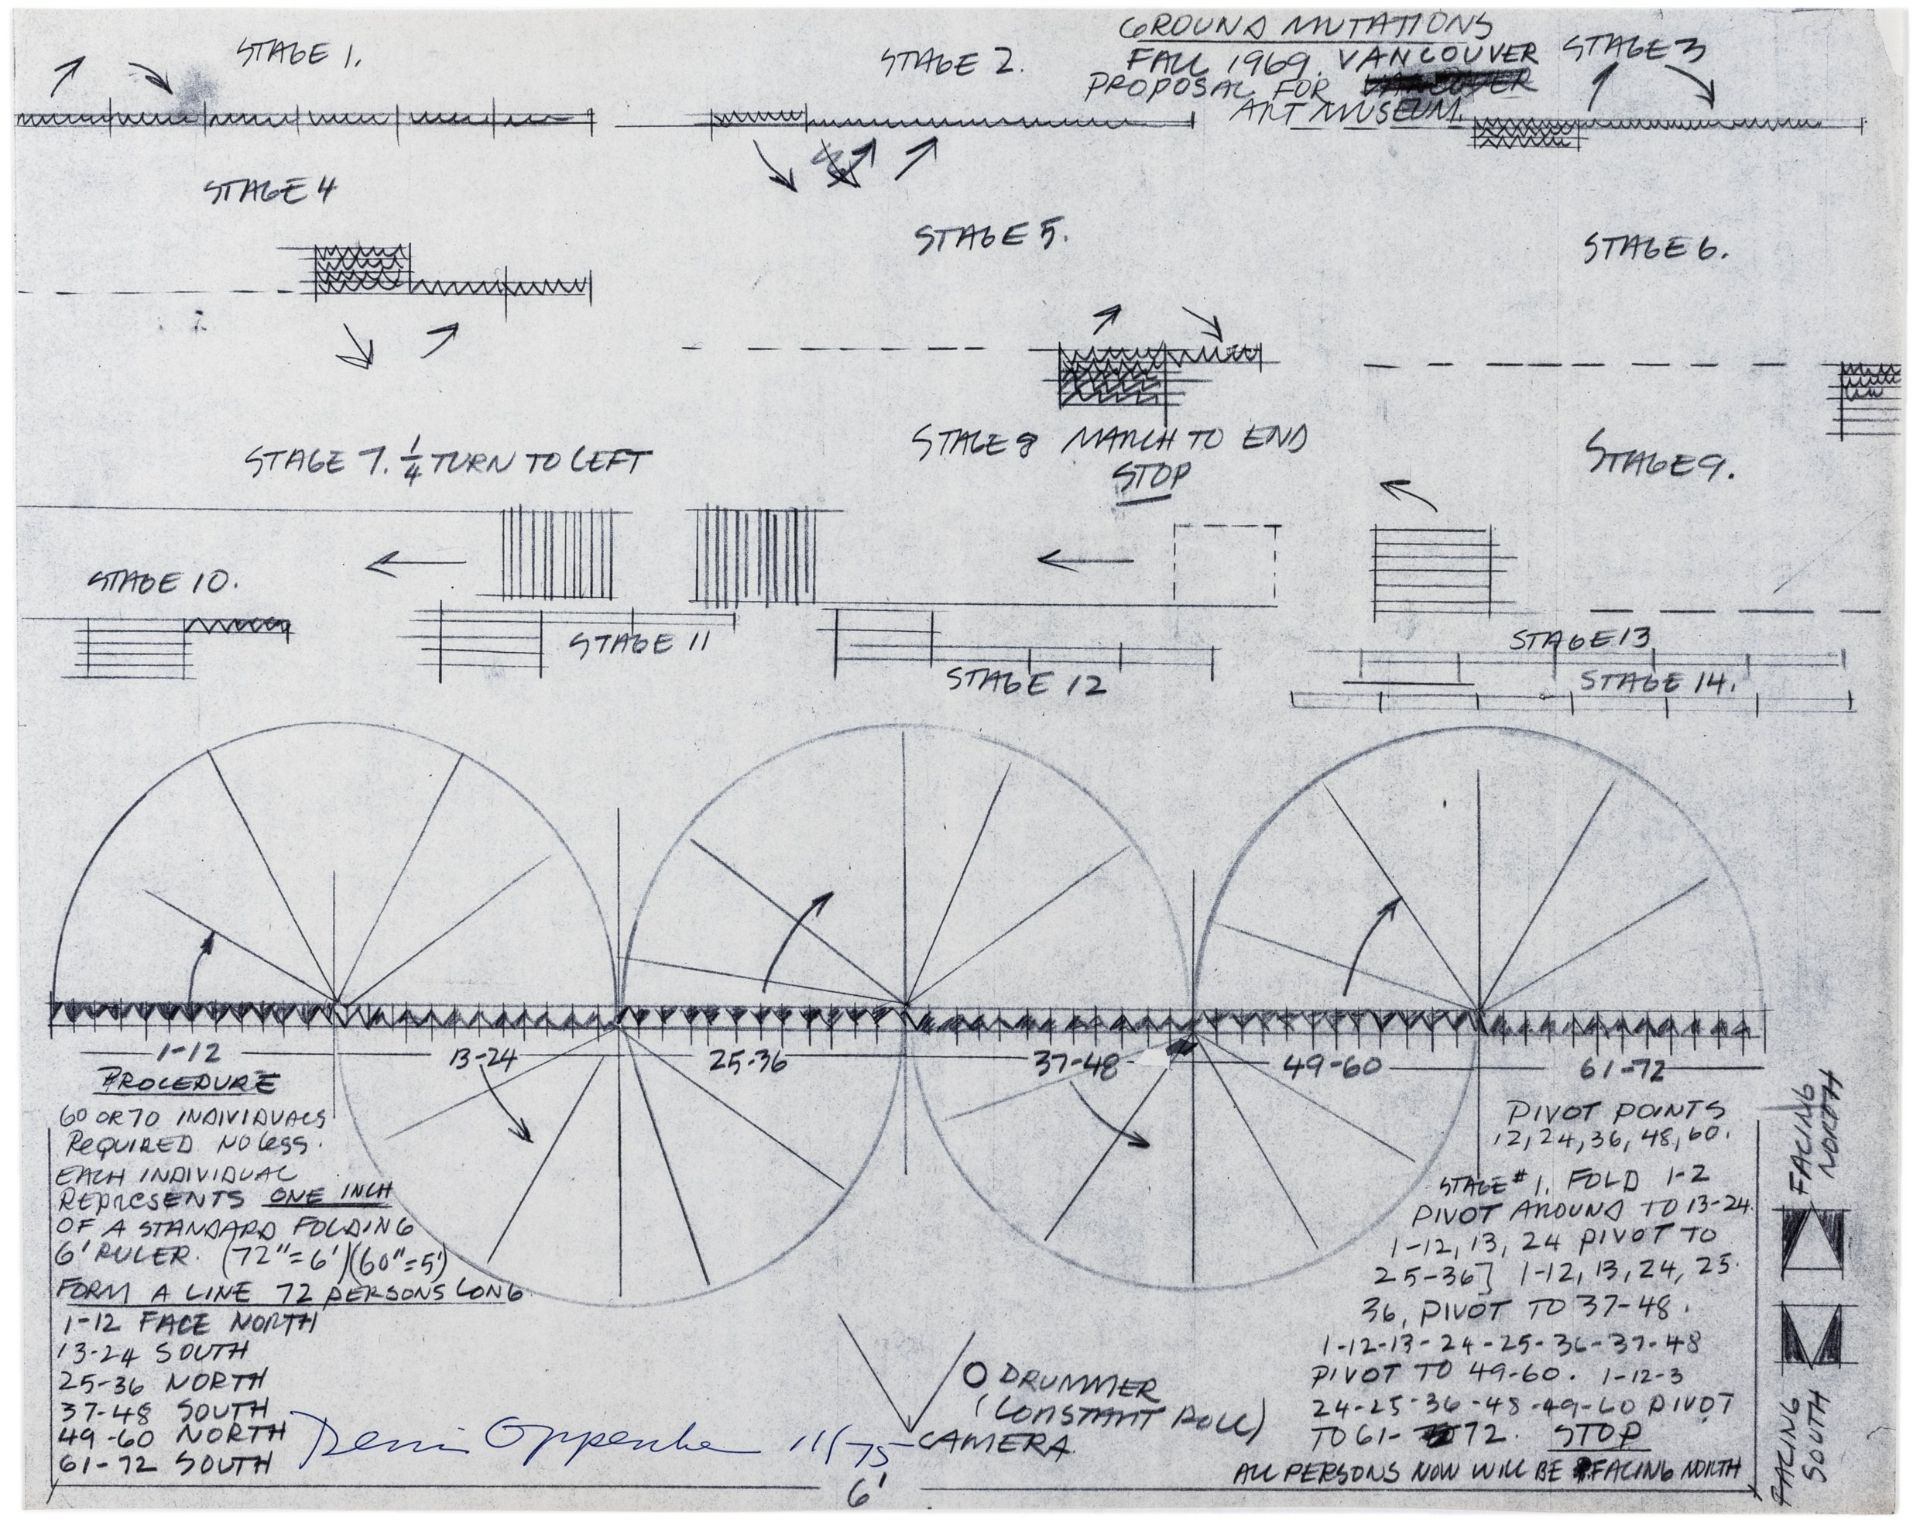 GROUND MUTATIONS
FALL 1969. VANCOUVER
PROPOSAL FOR
ART MUSEUM.
STAGE 1.
STAGE 2.
STAGE 3
STAGE 4
STAGE 5.
STAGE 6.
STAGE 7. 1/4 TURN TO LEFT
STAGE 8 MARCH TO END
STOP
STAGE 9.
STAGE 10.
STAGE 11
STAGE 12
STAGE 13
STAGE 14.
1-12
13-24
25-36
37-48
49-60
61-72
PROCEDURE
60 OR 70 INDIVIDUALS
REQUIRED NO LESS.
EACH INDIVIDUAL
REPRESENTS ONE INCH
OF A STANDARD FOLDING
6' RULER. (72"=6')(60"=5')
FORM A LINE 72 PERSONS LONG
1-12 FACE NORTH
13-24 SOUTH
25-36 NORTH
37-48 SOUTH
49-60 NORTH
61-72 SOUTH
Dennis Oppenheim 11/75
6'
DRUMMER
(CONSTANT ROLL)
CAMERA
PIVOT POINTS
12, 24, 36, 48, 60.
STAGE #1. FOLD 1-2
PIVOT AROUND TO 13-24
1-12, 13, 24 PIVOT TO
25-36] 1-12, 13, 24, 25.
36, PIVOT TO 37-48.
1-12-13-24-25-36-37-48
PIVOT TO 49-60. 1-12-3
24-25-36-48-49-60 PIVOT
TO 61-72. STOP
ALL PERSONS NOW WILL BE FACING NORTH
FACING
NORTH
FACING
SOUTH